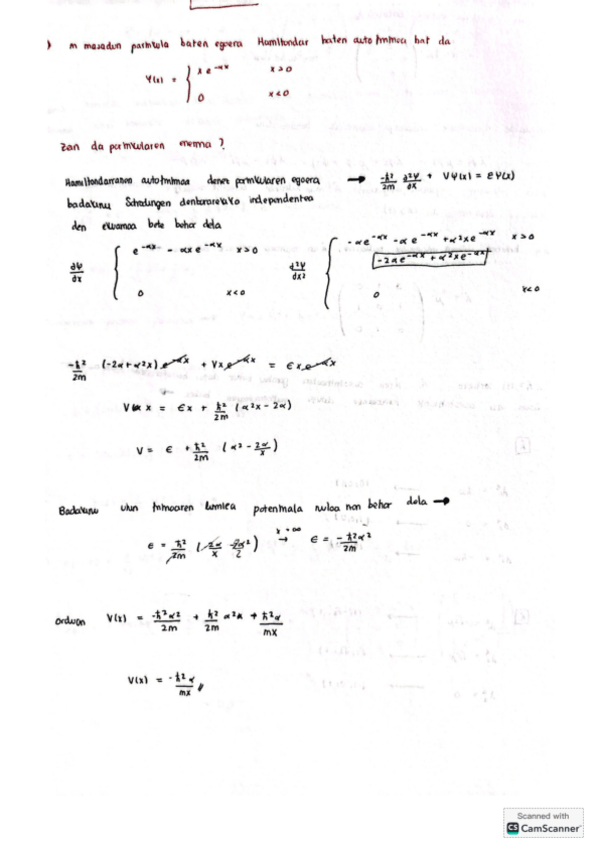 m masadun partikula baten egoera Hamiltondar baten autofuntzioa bat da
Ψ(x) = { x e^-αx x > 0
0 x < 0
Zein da partikularen energia ?
Hamiltondarraren autofuntzioa denez partikularen egoera → -ħ²/2m d²Ψ/dx + VΨ(x) = εΨ(x)
badakigu
den ekuazioa bete behar dela
∂Ψ/∂x { e^-αx - αx e^-αx x > 0
0 x < 0
d²Ψ/dx² { -αe^-αx - αe^-αx + α²xe^-αx x > 0
-2αe^-αx + α²xe^-αx
0 x < 0
-ħ²/2m (-2α + α²x) e^-αx + Vx e^-αx = εx e^-αx
V x = εx + ħ²/2m (α²x - 2α)
V = ε + ħ²/2m (α² - 2α/x)
Badakigu potentziala nulua non behar dela →
ε = ħ²/2m ( 2α/x ) x→∞ → ε = -ħ²α²/2m
Orduan V(x) = -ħ²α²/2m + ħ²/2m α² + ħ²α/mx
V(x) = -ħ²α/mx //
Scanned with
CS CamScanner